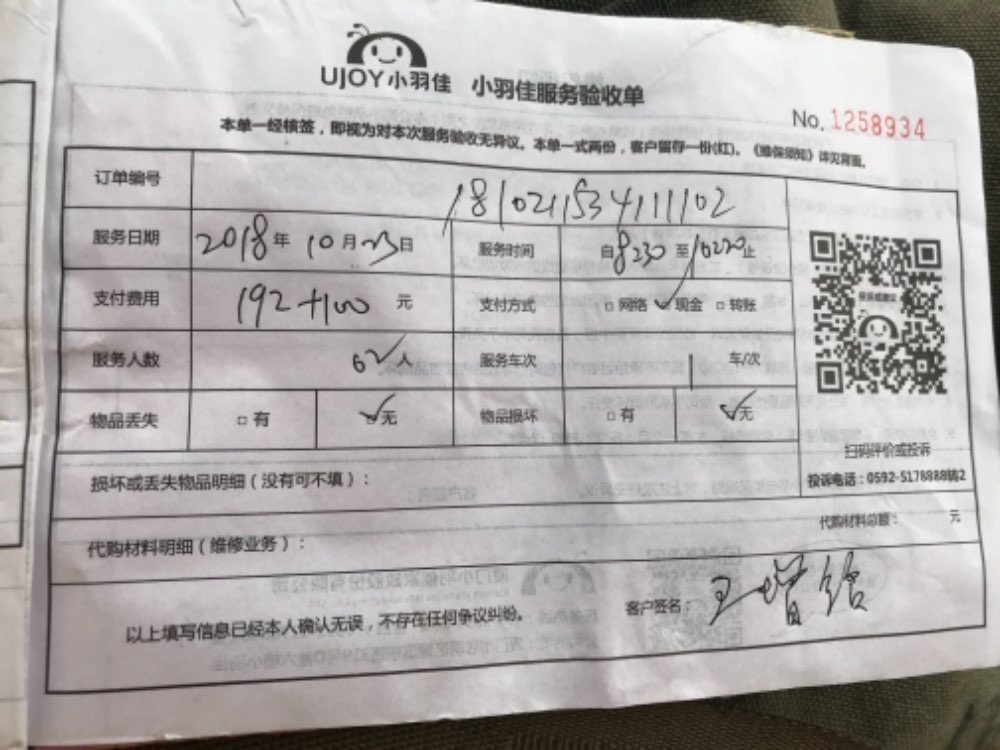 UJOY小羽佳 小羽佳服务验收单
No. 1258934
本单一经核签，即视为对本次服务验收无异议。本单一式两份，客户留存一份(红)。《维保须知》详见背面。
订单编号 181021534111102
服务日期 2018年10月23日 服务时间 自8230至10220止
支付费用 192+100 元 支付方式 □网络 ✓现金 □转账
服务人数 人 服务车次 1 车/次
物品丢失 □有 ✓无 物品损坏 □有 ✓无
扫码评价或投诉
损坏或丢失物品明细（没有可不填）： 投诉电话：0592-5178888转2
代购材料明细（维修业务）： 代购材料总额： 元
以上填写信息已经本人确认无误，不存在任何争议纠纷。 客户签名：